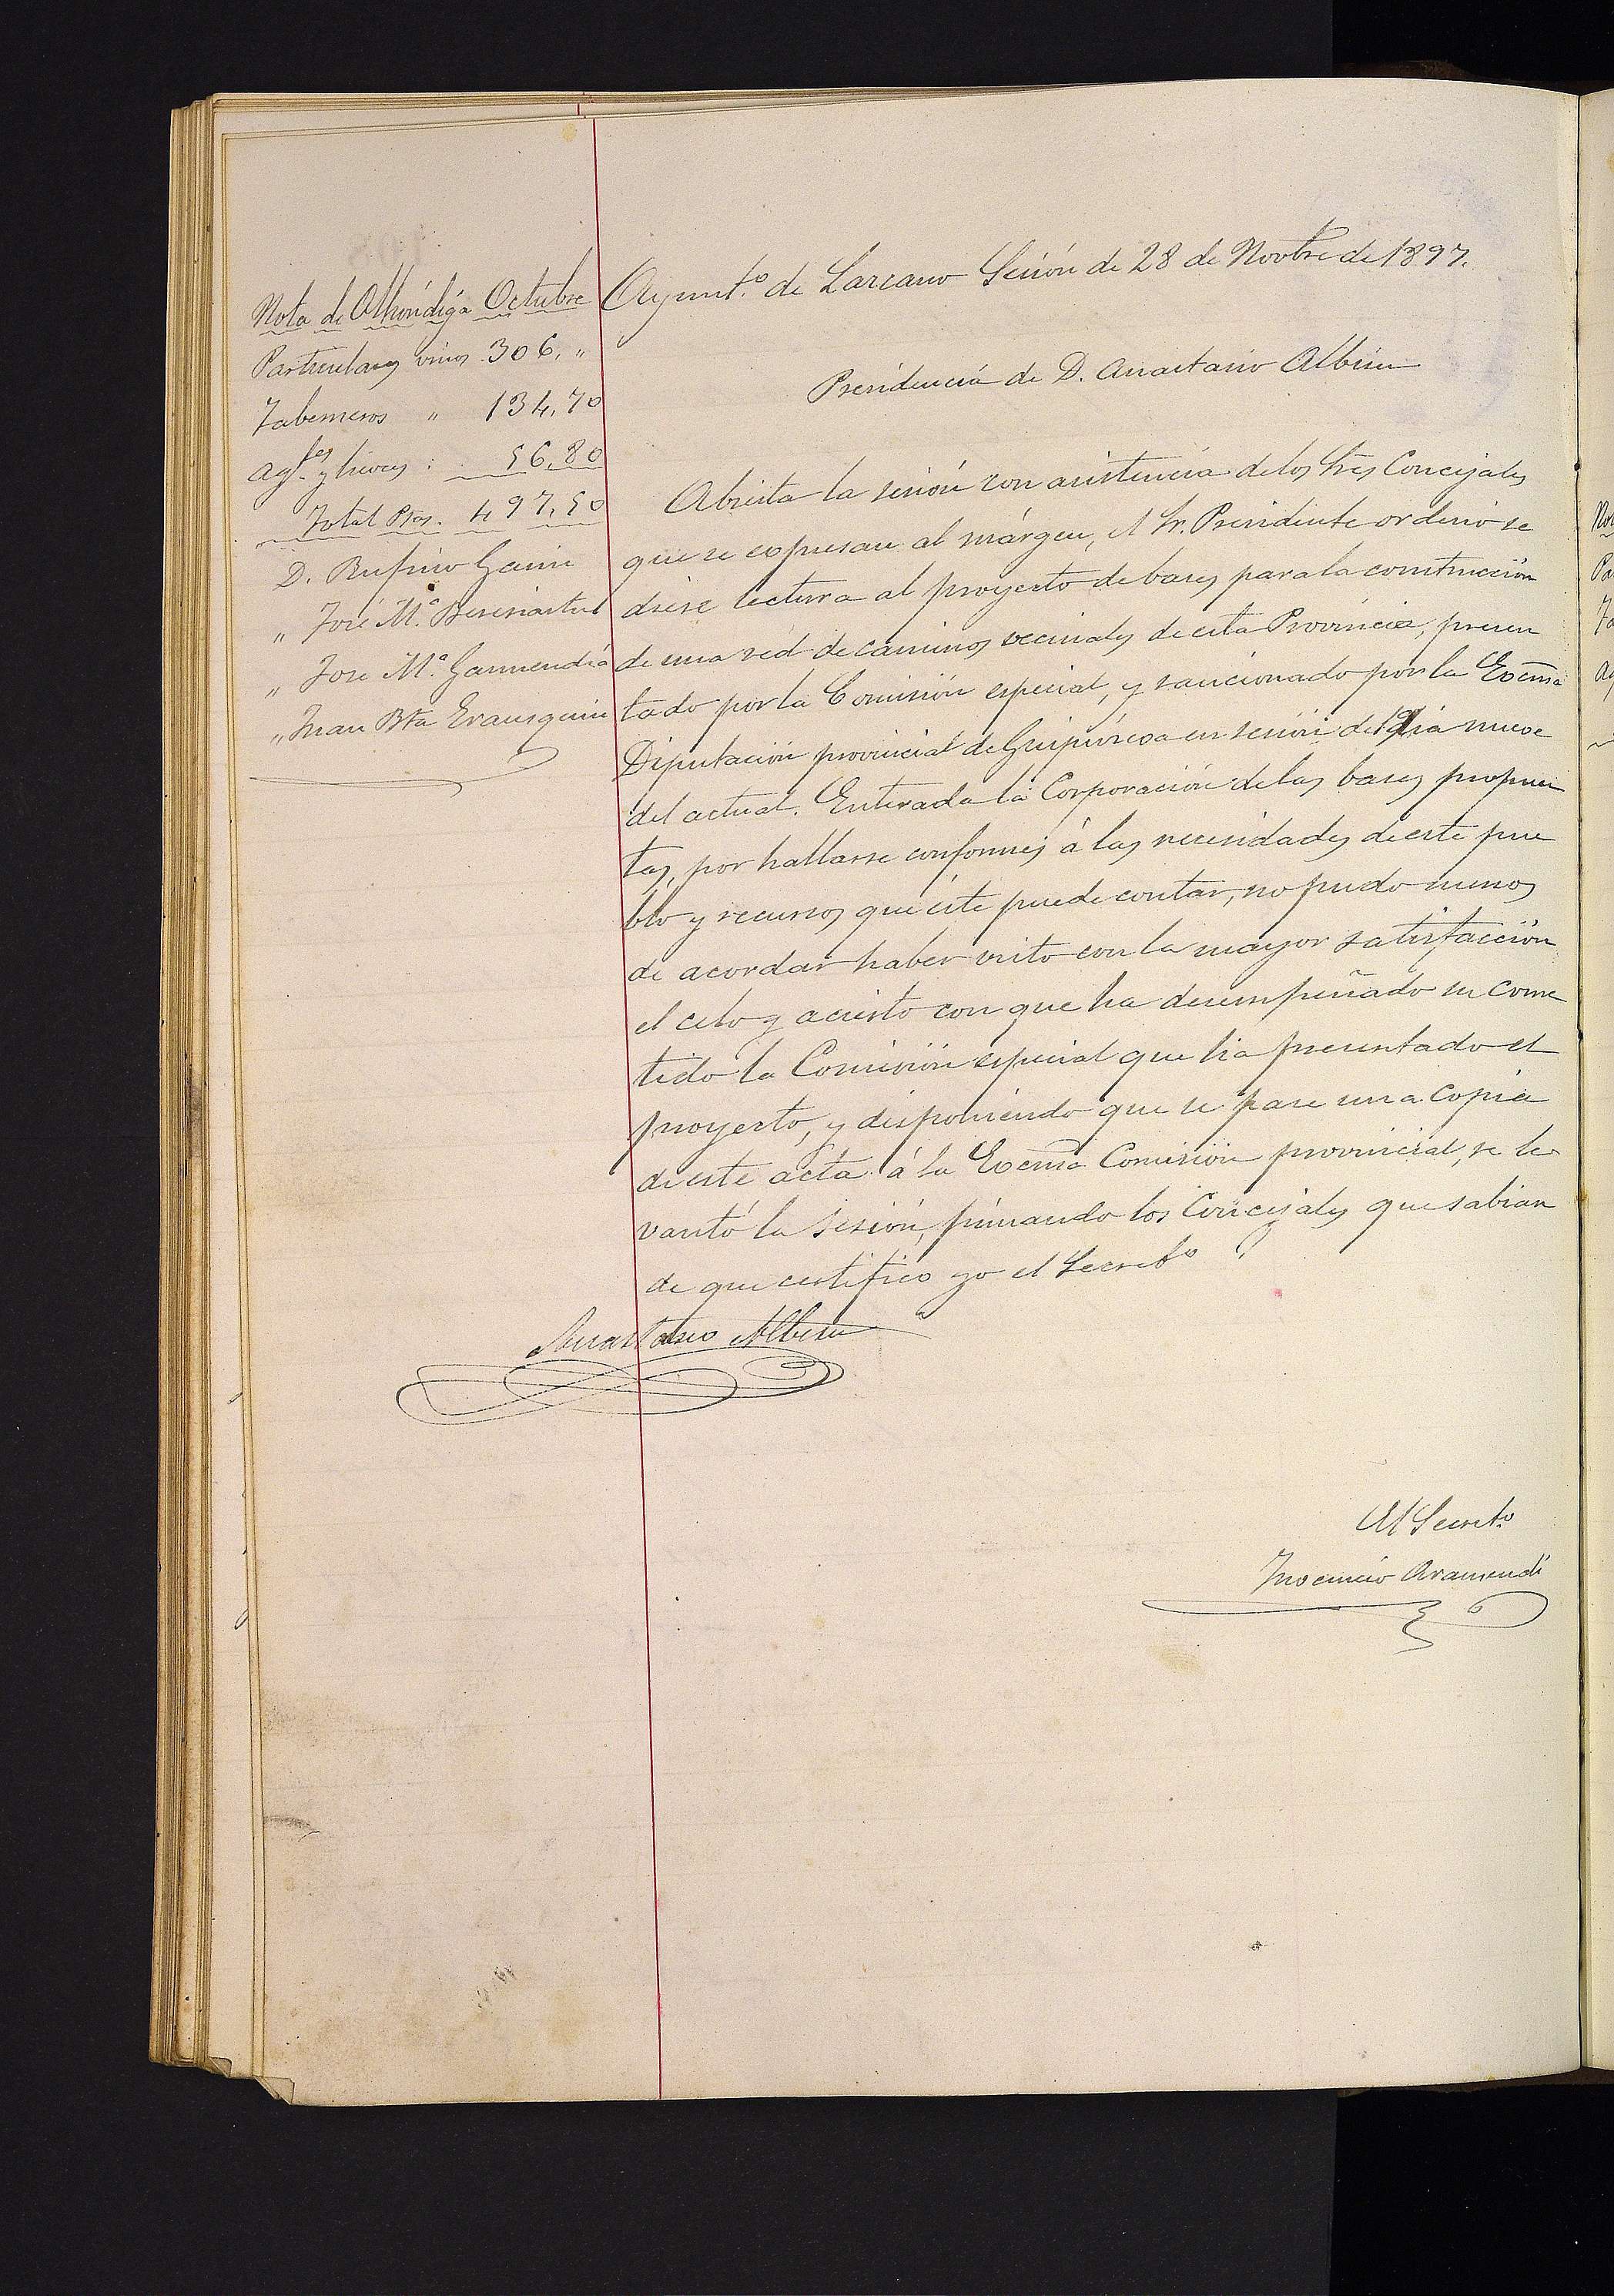 Nota de Alhóndiga Octubre
Particulares vinos 306, "
Taberneros " 134,70
Agtes y licores : 56,80
Total Ptas. 497,50
D. Rufino Garin
" José Mª. Beresiartu
" José Mª. Garmendia
" Juan Bta Erausquin
Ayuntº. de Lazcano Sesión de 28 de Novbre de 1897.
Presidencia de D. Anastasio Albisu
Abierta la sesión con asistencia de los Sres Concejales
que se expresan al márgen, el Sr. Presidente ordenó se
diese lectura al proyecto de bases para la construcción
de una red de caminos vecinales de esta Provincia, presen
tado por la Comisión especial, y sancionado por la Excma
Diputación provincial de Guipúzcoa en sesión del día nueve
del actual. Enterada la Corporación de las bases propues
tas, por hallarse conformes á las necesidades de este pue
blo y recursos que éste puede contar, no pudo menos
de acordar haber visto con la mayor satisfacción
el celo y acierto con que ha desempeñado su come
tido la Comisión especial que ha presentado el
proyecto, y disponiendo que se pase una copia
de este acta á la Excma Comisión provincial, se le
vantó la sesión, firmando los Concejales que sabían
de que certifico yo el Secretº
Anastasio Albisu
El Secretº
Inocencio Aramendi